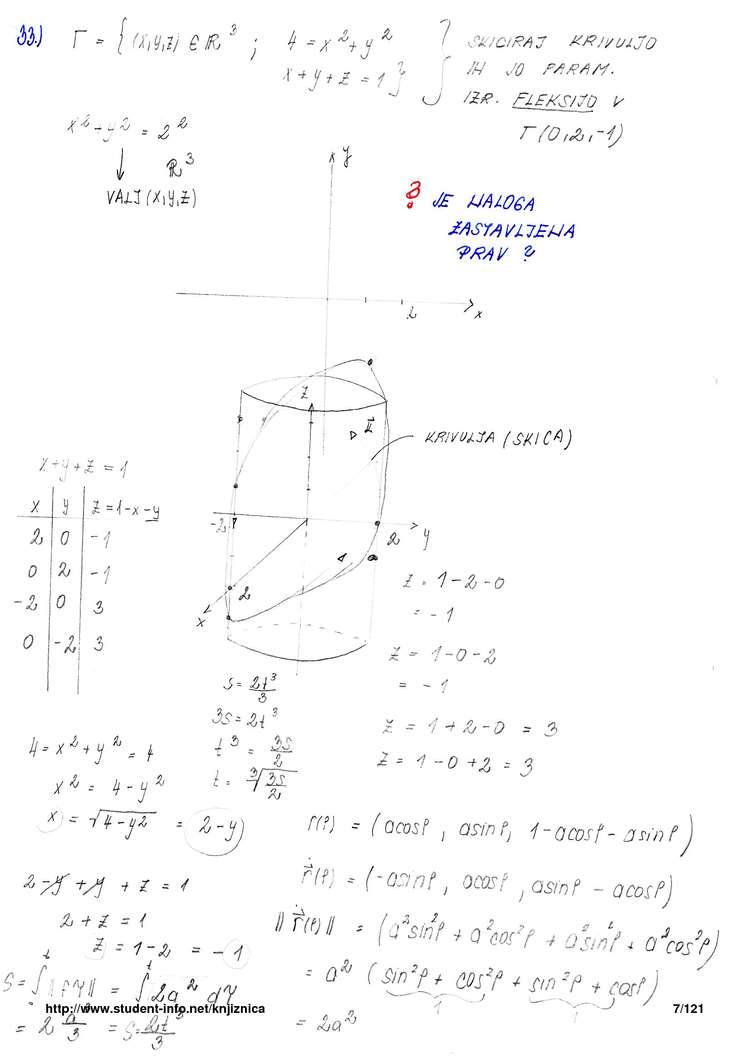 33.) Γ = { (x,y,z) ∈ ℝ³ ; 4 = x² + y²
x + y + z = 1 }
SKICIRAJ KRIVULJO
IN JO PARAM.
IZR. FLEKSIJO V
T(0,2,-1)
x² + y² = 2²
↓ ℝ³
VALJ (X,Y,Z)
? JE NALOGA
ZASTAVLJENA
PRAV ?
y
2 x
z
KRIVULJA (SKICA)
-2 2 y
2
x
x + y + z = 1
x | y | z = 1-x-y
2 | 0 | -1
0 | 2 | -1
-2 | 0 | 3
0 | -2 | 3
z = 1-2-0
= -1
z = 1-0-2
= -1
z = 1+2-0 = 3
z = 1-0+2 = 3
s = 2t³/3
3s = 2t³
t³ = 3s/2
t = ∛(3s/2)
4 = x² + y² = 4
x² = 4 - y²
x = √(4-y²) = 2-y
2 - y + y + z = 1
2 + z = 1
z = 1-2 = -1
r(φ) = (a cosφ, a sinφ, 1 - a cosφ - a sinφ)
ṙ(φ) = (-a sinφ, a cosφ, a sinφ - a cosφ)
‖ṙ(φ)‖ = (a² sin²φ + a² cos²φ + a² sin²φ + a² cos²φ)
= a² (sin²φ + cos²φ + sin²φ + cosφ)
1 1
= 2a²
http://www.student-info.net/knjiznica
7/121